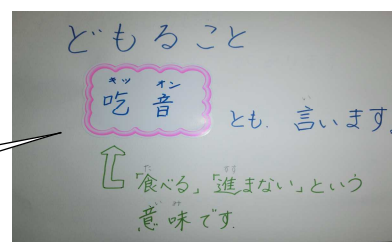 どもること
キツ オン
吃 音 とも. 言います.
「食べる」「進まない」という
意味です.